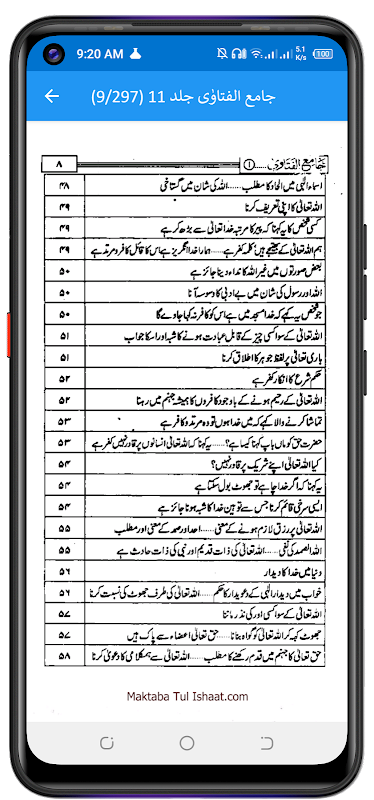 9:20 AM
5.1 K/s
100
جامع الفتاوٰی جلد 11 (9/297)
جامع الفتاوٰی ..... ۱
۸
اسماء الٰہی میں الحاد کا مطلب ..... اللہ کی شان میں گستاخی ۴۸
اللہ تعالیٰ کا اپنی تعریف کرنا ۴۹
کسی شخص کا یہ کہنا کہ پیر کا مرتبہ خدا تعالیٰ سے بڑھ کر ہے ۴۹
ہم اللہ تعالیٰ کے بھتیجے ہیں کلمہ کفر ہے ..... ہمارا خدا انگریز ہے اس کا قائل کافر و مرتد ہے ۴۹
بعض صورتوں میں غیر اللہ کا ندا دینا جائز ہے ۵۰
اللہ اور رسول کی شان میں بے ادبی کا وسوسہ آنا ۵۰
جو شخص یہ کہے کہ خدا مسجد میں ہے اس کو کافر نہ کہا جاوے گا ۵۰
اللہ تعالیٰ کے سوا کسی چیز کے قابل عبادت ہونے کا شبہ اور اسکا جواب ۵۱
باری تعالیٰ پر لفظ جوہر کا اطلاق کرنا ۵۱
حکم شرع کا انکار کفر ہے ۵۲
اللہ تعالیٰ کے رحیم ہونے کے باوجود کافروں کا ہمیشہ جہنم میں رہنا ۵۲
تماشا کرنے والا کہے کہ میں خدا ہوں تو وہ مرتد و کافر ہے ۵۳
حضرت حق کو ماں باپ کہنا کیسا ہے؟ ..... یہ کہنا کہ اللہ تعالیٰ انسانوں پر قادر نہیں کفر ہے ۵۳
کیا اللہ تعالیٰ اپنے شریک پر قادر نہیں؟ ۵۴
یہ کہنا کہ اگر خدا چاہے تو جھوٹ بول سکتا ہے ۵۴
ایسی سرخی قائم کرنا جس سے توہین خدا کا شبہ ہونا جائز ہے ۵۴
اللہ تعالیٰ پر رزق لازم ہونے کے معنی ..... احد اور صمد کے معنی اور مطلب ۵۵
اللہ الصمد کی نفی ..... اللہ تعالیٰ کی ذات قدیم اور نبی کی ذات حادث ہے ۵۵
دنیا میں خدا کا دیدار ۵۶
خواب میں دیدار الٰہی کے دعویدار کا حکم ..... اللہ تعالیٰ کی طرف جھوٹ کی نسبت کرنا ۵۶
اللہ تعالیٰ کے سوا کسی اور کی نذر ماننا ۵۷
جھوٹ کہہ کر اللہ تعالیٰ کو گواہ بنانا ..... حق تعالیٰ اعضاء سے پاک ہیں ۵۷
حق تعالیٰ کا جہنم میں قدم رکھنے کا مطلب ..... اللہ تعالیٰ سے ہمکلامی کا دعویٰ کرنا ۵۸
Maktaba Tul Ishaat.com